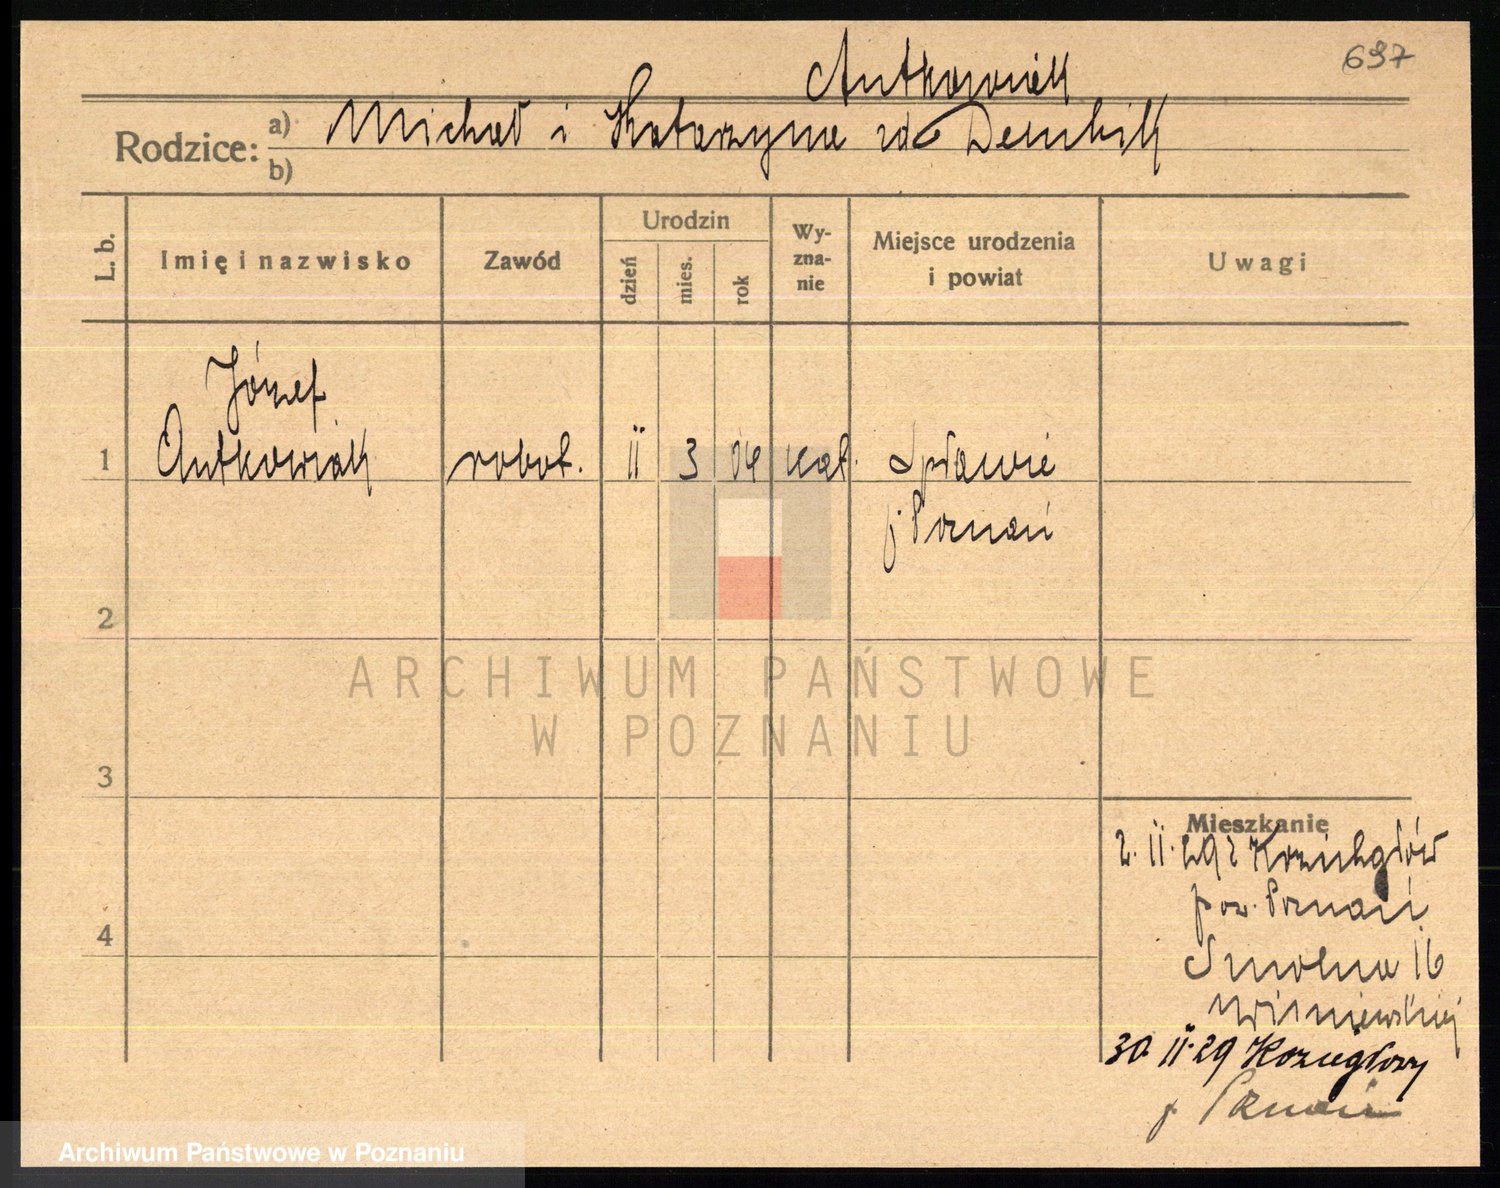 697
Antkowiak
Rodzice: a) Michał i Katarzyna zd
b)
L. b.
Imię i nazwisko
Zawód
Urodzin
dzień
mies.
rok
Wy-
zna-
nie
Miejsce urodzenia
i powiat
Uwagi
Józef
1 Antkowiak robot. 11 3 04 kat. Spławie
p. Poznań
2
ARCHIWUM PAŃSTWOWE
W POZNANIU
3
Mieszkanie
2. 11. 29 z Koziegłów
pow. Poznań
4
Smolna 16
Wiśniewskiej
30 11. 29 Koziegłowy
p. Poznań
Archiwum Państwowe w Poznaniu